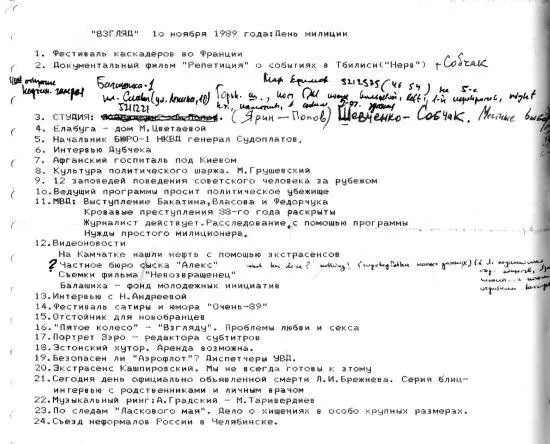 "ВЗГЛЯД" 1о ноября 1989 года:День милиции
1. Фестиваль каскадеров во Франции
2. Документальный фильм "Репетиция" о событиях в Тбилиси("Нерв") + Собчак
Балашиха-1
3. СТУДИЯ: (Ярин-Попов) Шевченко-Собчак.
4. Елабуга - дом М.Цветаевой
5. Начальник БЮРО-1 НКВД генерал Судоплатов.
6. Интервью Дубчека
7. Афганский госпиталь под Киевом
8. Культура политического шаржа. М.Грушевский
9. 12 заповедей поведения советского человека за рубежом
1о.Ведущий программы просит политическое убежище
11.МВД: Выступление Бакатина,Власова и Федорчука
Кровавые преступления 88-го года раскрыты
Журналист действует.Расследование с помощью программы
Нужды простого милиционера.
12.Видеоновости
На Камчатке нашли нефть с помощью экстрасенсов
? Частное бюро сыска "Алекс"
Съемки фильма "Невозвращенец"
Балашиха - фонд молодежных инициатив
13.Интервью с Н.Андреевой
14.Фестиваль сатиры и юмора "Очень-89"
15.Отстойник для новобранцев
16."Пятое колесо" - "Взгляду". Проблемы любви и секса
17.Портрет Зэро - редактора субтитров
18.Эстонский хутор. Аренда возможна.
19.Безопасен ли "Аэрофлот"? Диспетчеры УВД.
20.Экстрасенс Кашпировский. Мы не всегда готовы к этому
21.Сегодня день официально объявленной смерти Л.И.Брежнева. Серия блиц-
интервью с родственниками и личным врачом
22.Музыкальный ринг:А.Градский - М.Таривердиев
23.По следам "Ласкового мая". Дело о хищениях в особо крупных размерах.
24.Съезд неформалов России в Челябинске.